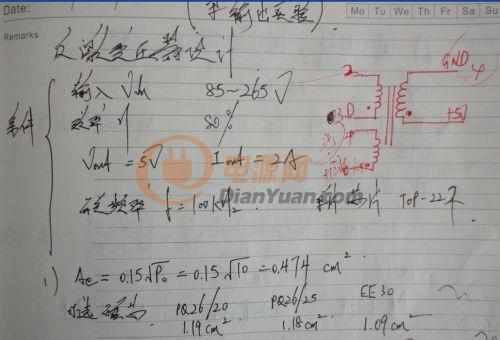 Date:
(半输出实验)
Mo Tu We Th Fr Sa Su
Remarks
反激变压器设计
条件
输入 Vin 85~265V
效率 η 80%
Vout = 5V Iout = 2A
磁频率 f = 100KHz
芯片 TOP-22
GND
2
4
3.D
+5V
电源网
DianYuan.com
1) Ae = 0.15√Po = 0.15√10 = 0.474 cm²
可选磁芯 PQ26/20 PQ26/25 EE30
1.19cm² 1.18cm² 1.09cm²